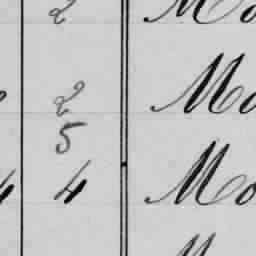 2 Mo
2 Mo
5
4 4 Mo